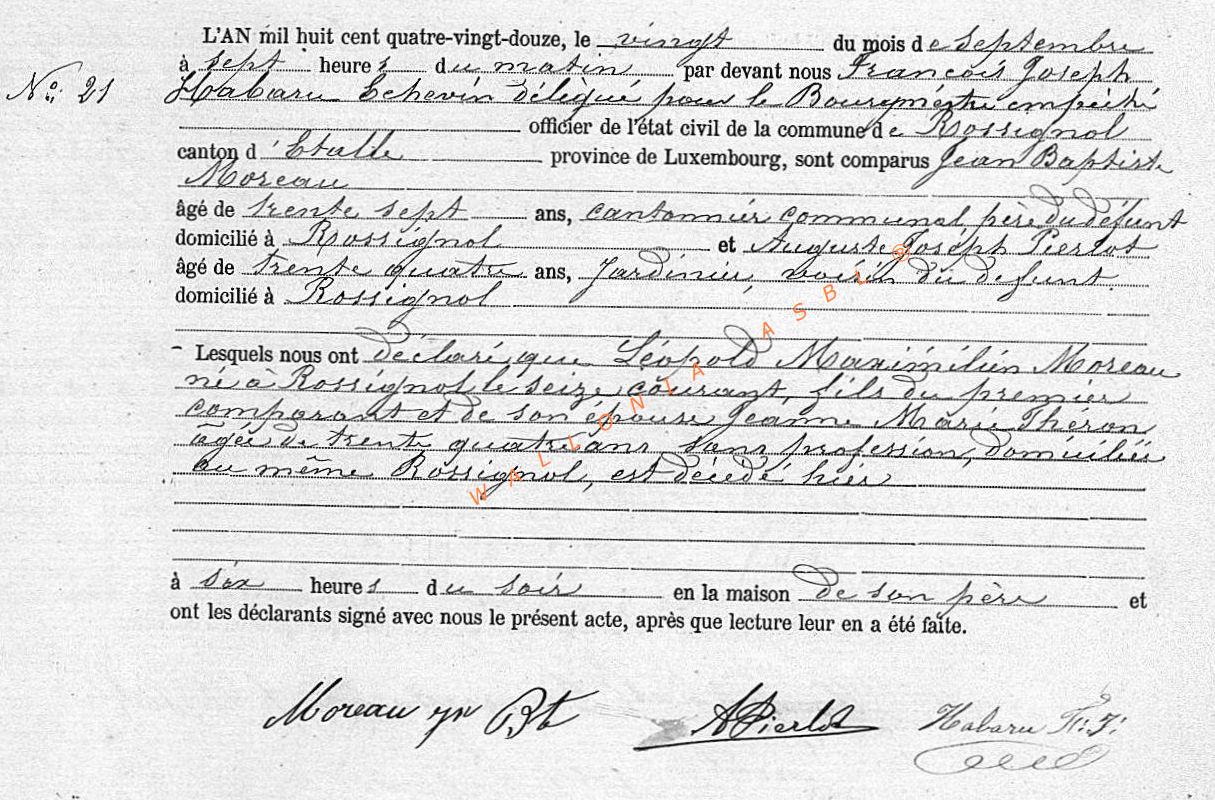 L'AN mil huit cent quatre-vingt-douze, le vingt du mois de Septembre
à sept heures du matin par devant nous François Joseph
No. 21 Habaru Echevin délégué pour le Bourgmestre empêché
officier de l'état civil de la commune de Rossignol
canton d'Etalle province de Luxembourg, sont comparus Jean Baptiste
Moreau
âgé de trente sept ans, cantonnier communal père du défunt
domicilié à Rossignol et Auguste Joseph Pierlot
âgé de trente quatre ans, Jardinier, voisin du defunt.
domicilié à Rossignol
Lesquels nous ont déclaré que Léopold Maximilien Moreau
né à Rossignol le seize courant, fils du premier
comparant et de son épouse Jeanne Marie Théron
âgée de trente quatre ans, sans profession, domiciliée
au même Rossignol, est décédé hier
à six heures du soir en la maison de son père et
ont les déclarants signé avec nous le présent acte, après que lecture leur en a été faite.
Moreau jn Bte APierlot Habaru F: J:
WALLONIA ASBL ®